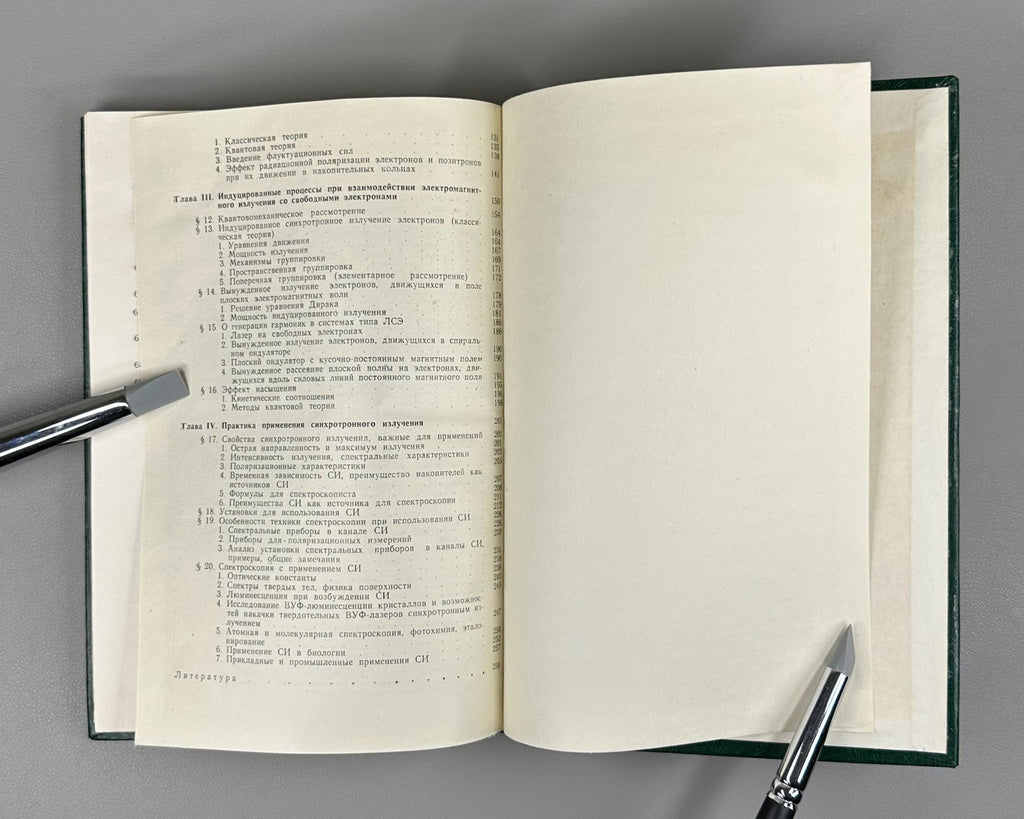 1. Классическая теория 131
2. Квантовая теория 135
3. Введение флуктуационных сил 138
4. Эффект радиационной поляризации электронов и позитронов
при их движении в накопительных кольцах 141
Глава III. Индуцированные процессы при взаимодействии электромагнит-
ного излучения со свободными электронами 150
§ 12. Квантовомеханическое рассмотрение 154
§ 13. Индуцированное синхротронное излучение электронов (класси-
ческая теория) 164
1. Уравнения движения 164
2. Мощность излучения 167
3. Механизмы группировки 169
4. Пространственная группировка 171
5. Поперечная группировка (элементарное рассмотрение) 172
§ 14. Вынужденное излучение электронов, движущихся в поле
плоских электромагнитных волн 178
1. Решение уравнения Дирака 179
2 Мощность индуцированного излучения 181
§ 15. О генерации гармоник в системах типа ЛСЭ 186
1. Лазер на свободных электронах 186
2. Вынужденное излучение электронов, движущихся в спираль-
ном ондуляторе 190
3. Плоский ондулятор с кусочно-постоянным магнитным полем 190
4. Вынужденное рассеяние плоской волны на электронах, дви-
жущихся вдоль силовых линий постоянного магнитного поля
§ 16. Эффект насыщения 195
1. Кинетические соотношения
2. Методы квантовой теории
Глава IV. Практика применения синхротронного излучения
§ 17. Свойства синхротронного излучения, важные для применений
1. Острая направленность и максимум излучения
2. Интенсивность излучения, спектральные характеристики
3. Поляризационные характеристики
4. Временная зависимость СИ, преимущество накопителей как
источников СИ
5. Формулы для спектроскописта
6. Преимущества СИ как источника для спектроскопии
§ 18. Установки для использования СИ
§ 19. Особенности техники спектроскопии при использовании СИ
1. Спектральные приборы в канале СИ
2. Приборы для поляризационных измерений
3. Анализ установки спектральных приборов в каналы СИ,
примеры, общие замечания
§ 20. Спектроскопия с применением СИ
1. Оптические константы
2. Спектры твердых тел, физика поверхности
3. Люминесценция при возбуждении СИ
4. Исследование ВУФ-люминесценции кристаллов и возможнос-
тей накачки твердотельных ВУФ-лазеров синхротронным из-
лучением 247
5. Атомная и молекулярная спектроскопия, фотохимия, этало-
нирование 250
6. Применение СИ в биологии 252
7. Прикладные и промышленные применения СИ 257
Литература